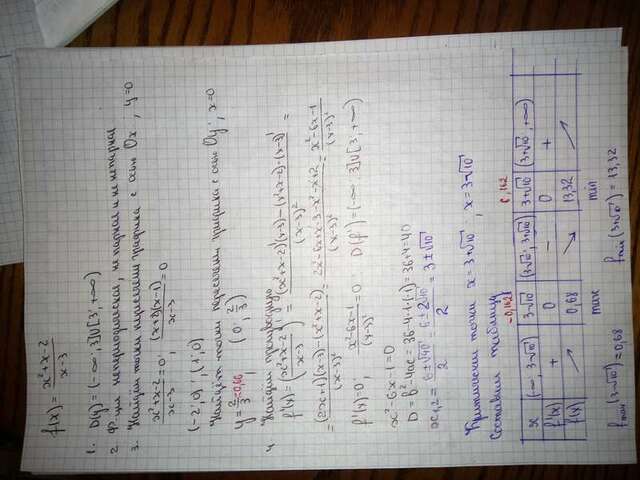 f(x) = x²+x-2 / x-3
1. D(y) = (-∞; 3]U[3; +∞)
2. Ф-ция непериодическая, не парная и не непарная
3. Найдём точки пересечения графика с осью Ox; y=0
x²+x-2 / x-3 = 0; (x+2)(x-1) / x-3 = 0
(-2; 0); (1; 0)
Найдём точки пересечения графика с осью Oy; x=0
y = 2/3 ≈0,66; (0; 2/3)
4. Найдём производную
f'(x) = (x²+x-2 / x-3)' = (x²+x-2)'(x-3)-(x²+x-2)·(x-3)' / (x-3)² =
= (2x+1)(x-3)-(x²+x-2) / (x-3)² = 2x²-6x+x-3-x²-x+2 / (x-3)² = x²-6x-1 / (x-3)²
f'(x)=0; x²-6x-1 / (x-3)² = 0; D(f') = (-∞; 3]U[3; +∞)
x²-6x-1=0
D = b²-4ac = 36-4·1·(-1) = 36+4=40
x1,2 = 6±√40 / 2 = 6±2√10 / 2 = 3±√10
Критические точки x = 3+√10; x = 3-√10
Составим таблицу
-0,162 6,162
x (-∞; 3-√10) 3-√10 (3-√10; 3+√10) 3+√10 (3+√10; +∞)
f'(x) + 0 - 0 +
f(x) ↗ 0,68 ↘ 13,32 ↗
max min
fmax(3-√10) = 0,68 fmin(3+√10) = 13,32